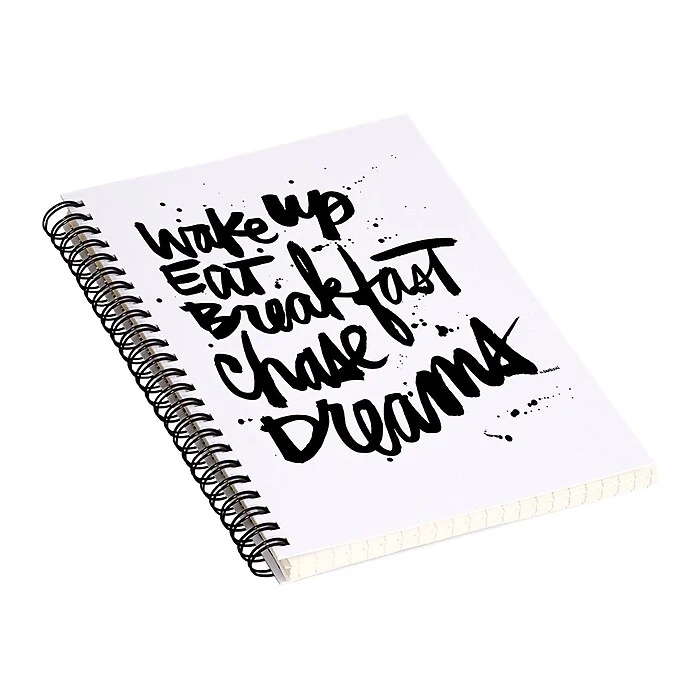 wake up
Eat
Breakfast
chase
Dreams